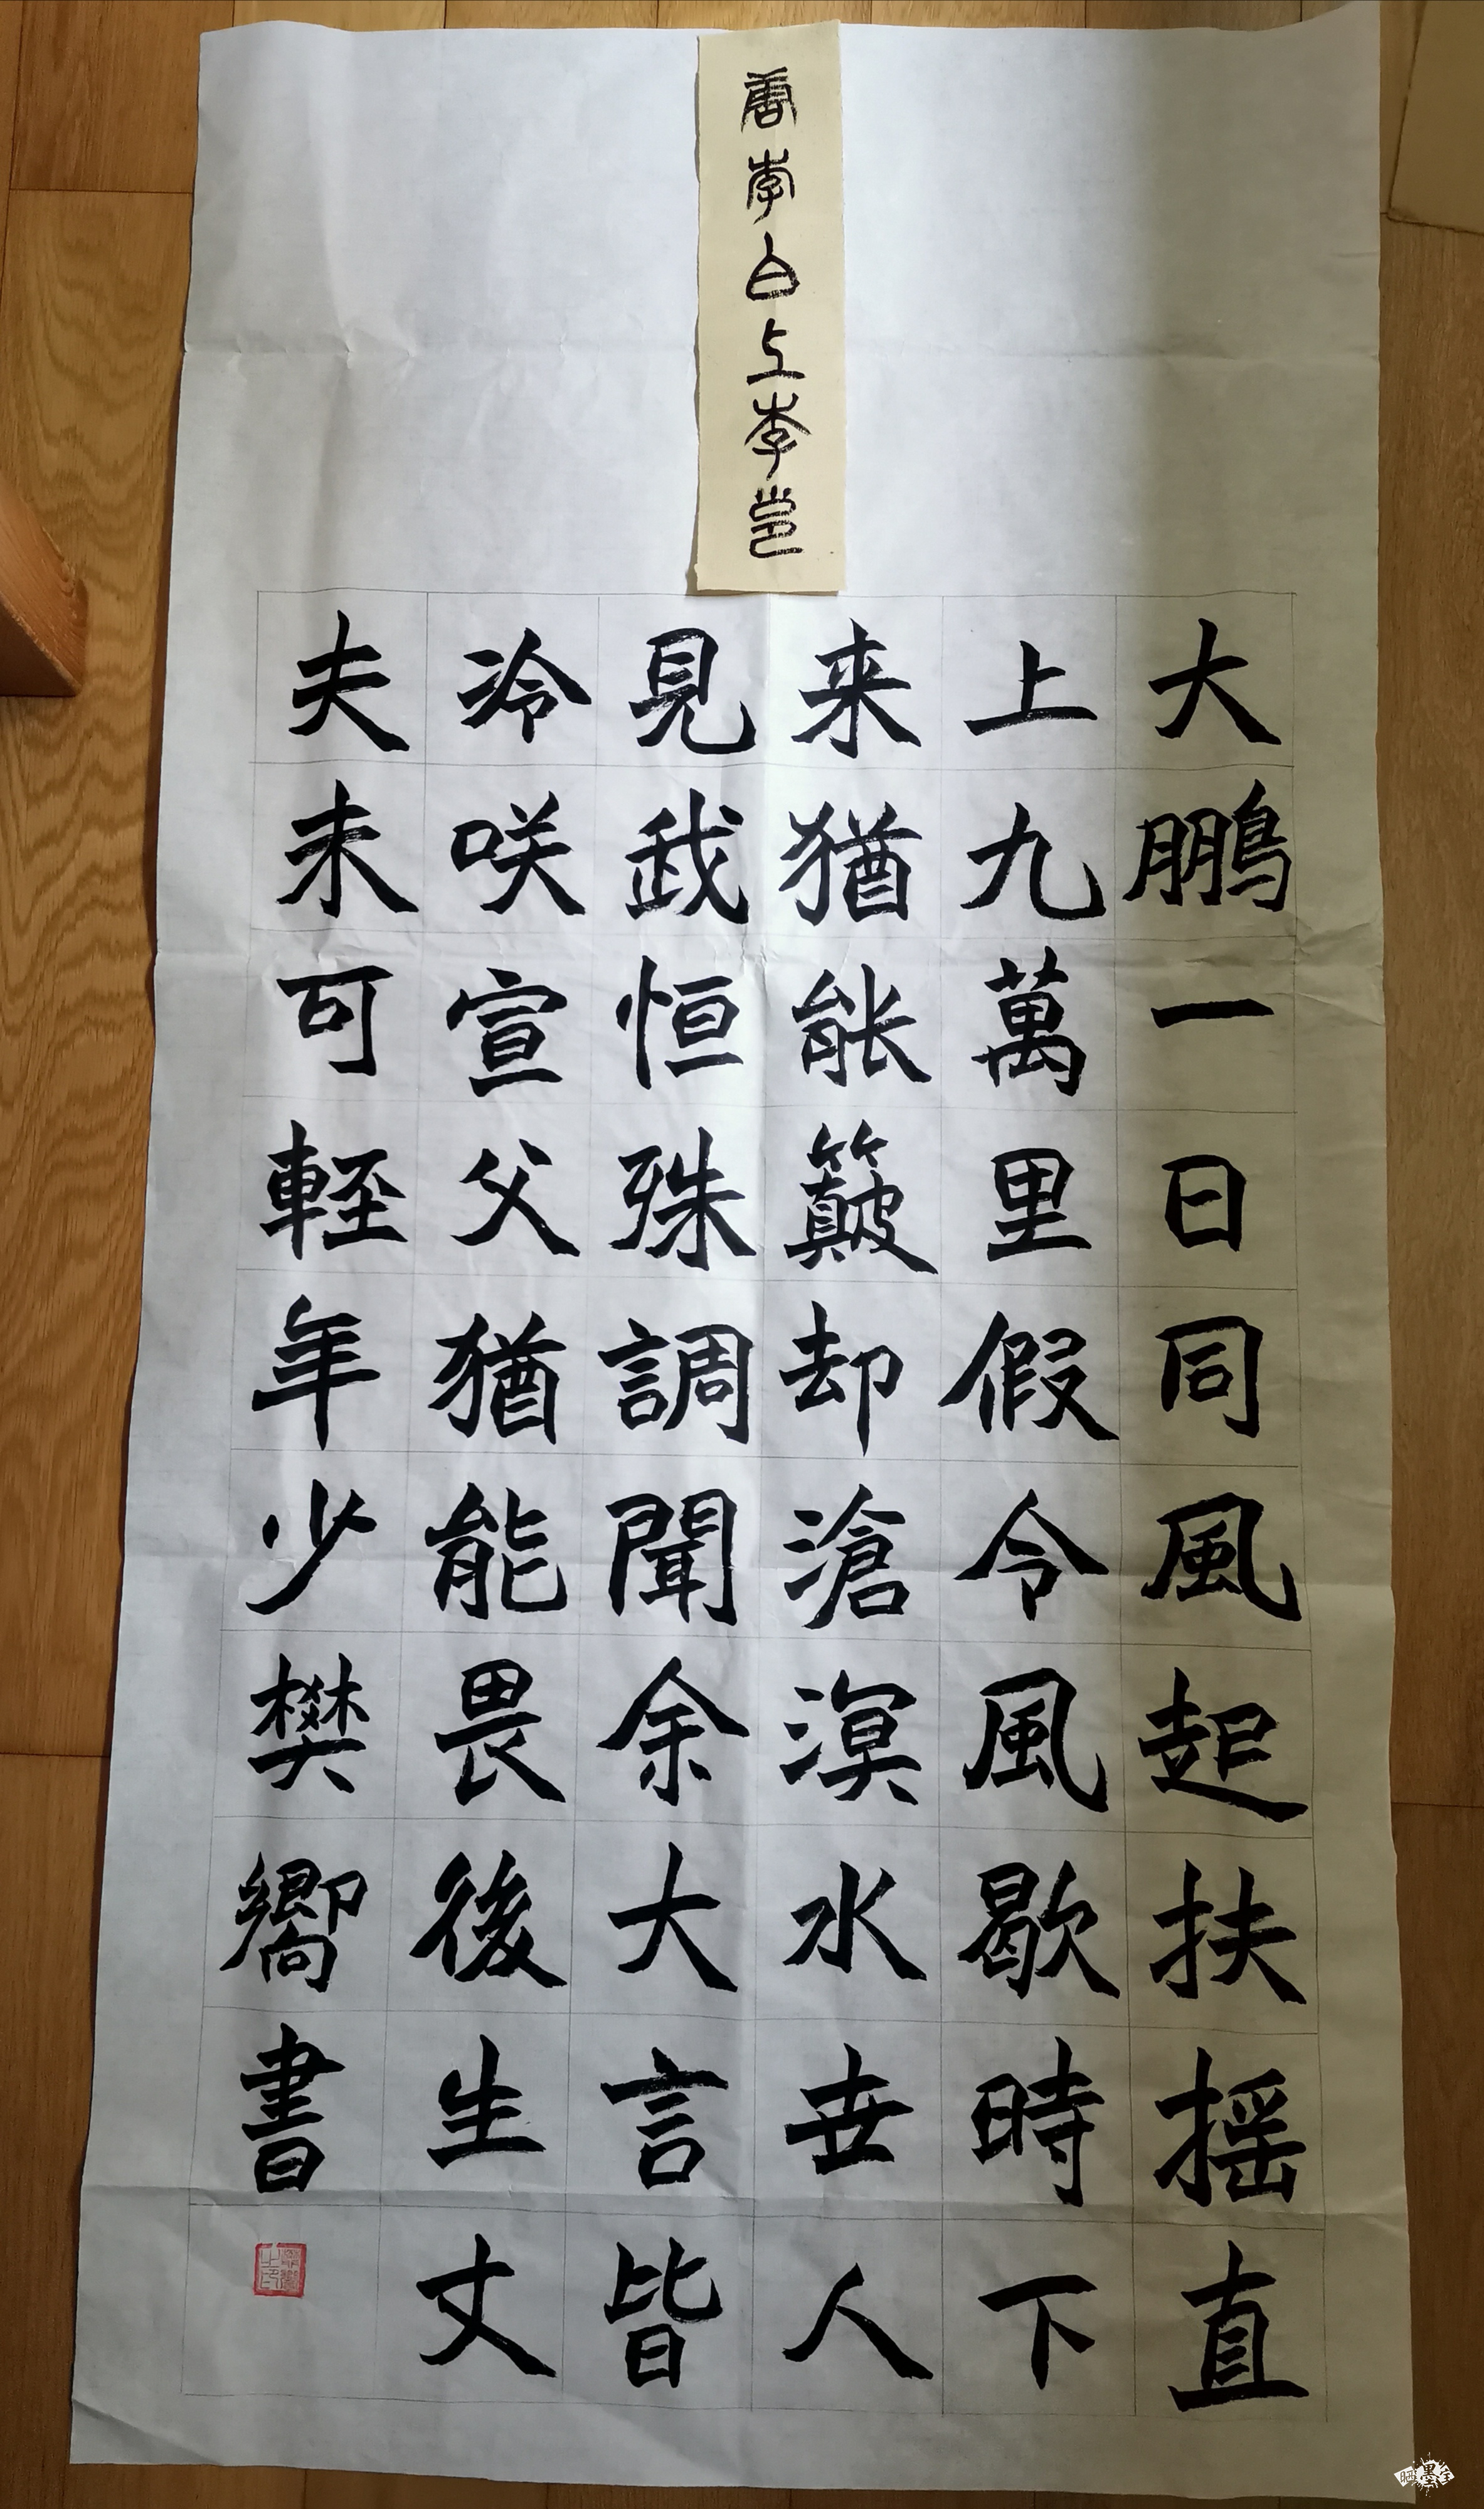 唐李白上李邕
大鵬一日同風起扶摇直
上九萬里假令風歇時下
来猶能簸却滄溟水世人
見我恒殊調聞余大言皆
冷咲宣父猶能畏後生丈
夫未可輕年少樊嚮書